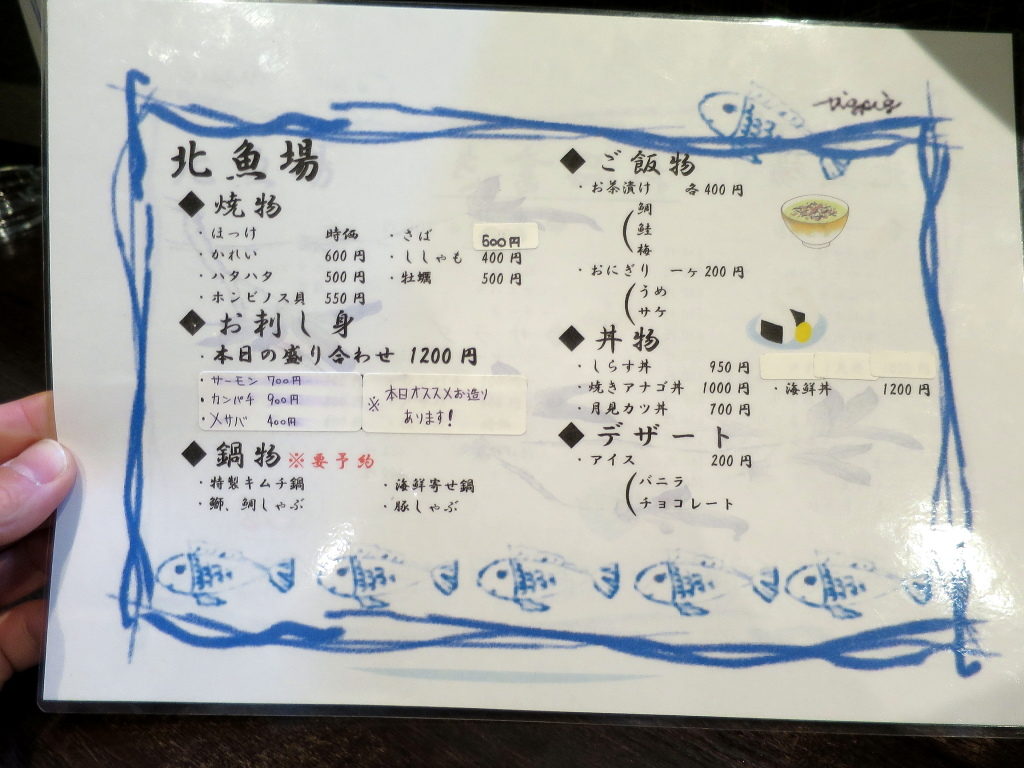 北魚場
◆焼物
・ほっけ 時価 ・さば 600円
・かれい 600円 ・ししゃも 400円
・ハタハタ 500円 ・牡蠣 500円
・ホンビノス貝 550円
◆お刺し身
・本日の盛り合わせ 1200円
・サーモン 700円
・カンパチ 900円
・〆サバ 400円
※本日オススメお造り
あります!
◆鍋物 ※要予約
・特製キムチ鍋 ・海鮮寄せ鍋
・鰤、鯛しゃぶ ・豚しゃぶ
◆ご飯物
・お茶漬け 各400円
鯛
鮭
梅
・おにぎり 一ヶ200円
うめ
サケ
◆丼物
・しらす丼 950円
・焼きアナゴ丼 1000円 ・海鮮丼 1200円
・月見カツ丼 700円
◆デザート
・アイス 200円
バニラ
チョコレート